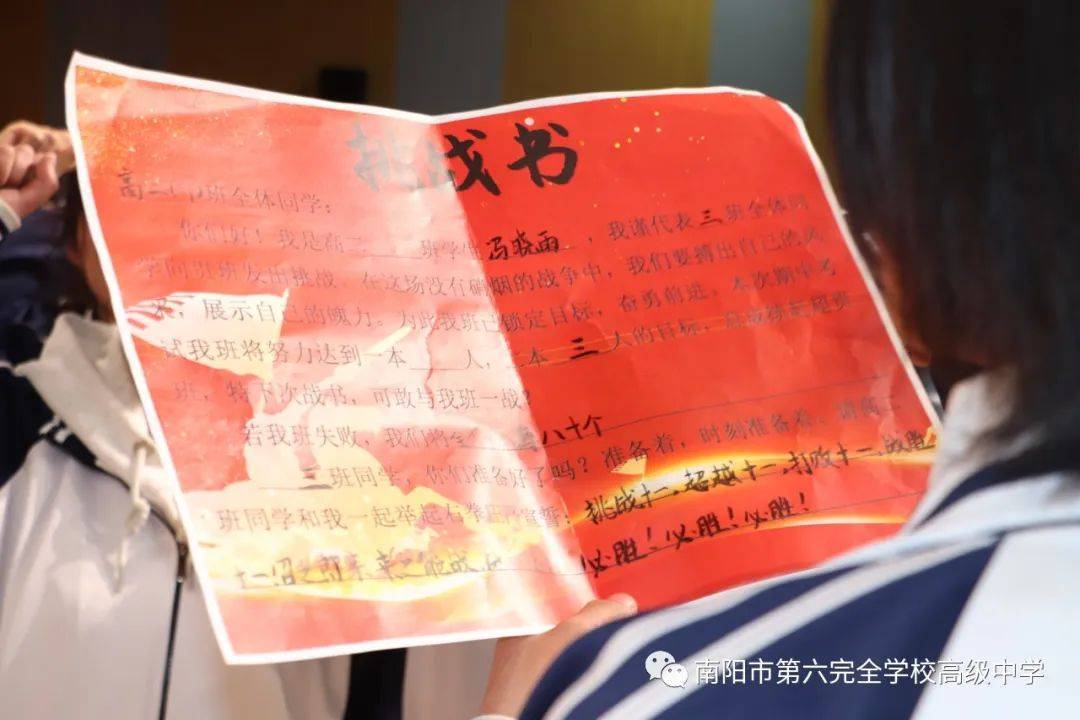 挑战书
高二 班全体同学：
你们好！我是高二 班学生冯晓雨，我谨代表三班全体同
学向贵班发出挑战。在这场没有硝烟的战争中，我们要搏出自己的风
采，展示自己的魄力。为此我班已锁定目标，奋勇前进。本次期中考
试我班将努力达到一本 人，二本三人的目标，
班，特下次战书，可敢与我班一战？
若我班失败，我们将 八十个
三班同学，你们准备好了吗？准备着，时刻准备着，请高二
班同学和我一起举起右拳 宣誓：挑战十二，超越十二，打败十二，战胜
十二，召之即来，来之能战， 必胜！必胜！必胜！
南阳市第六完全学校高级中学